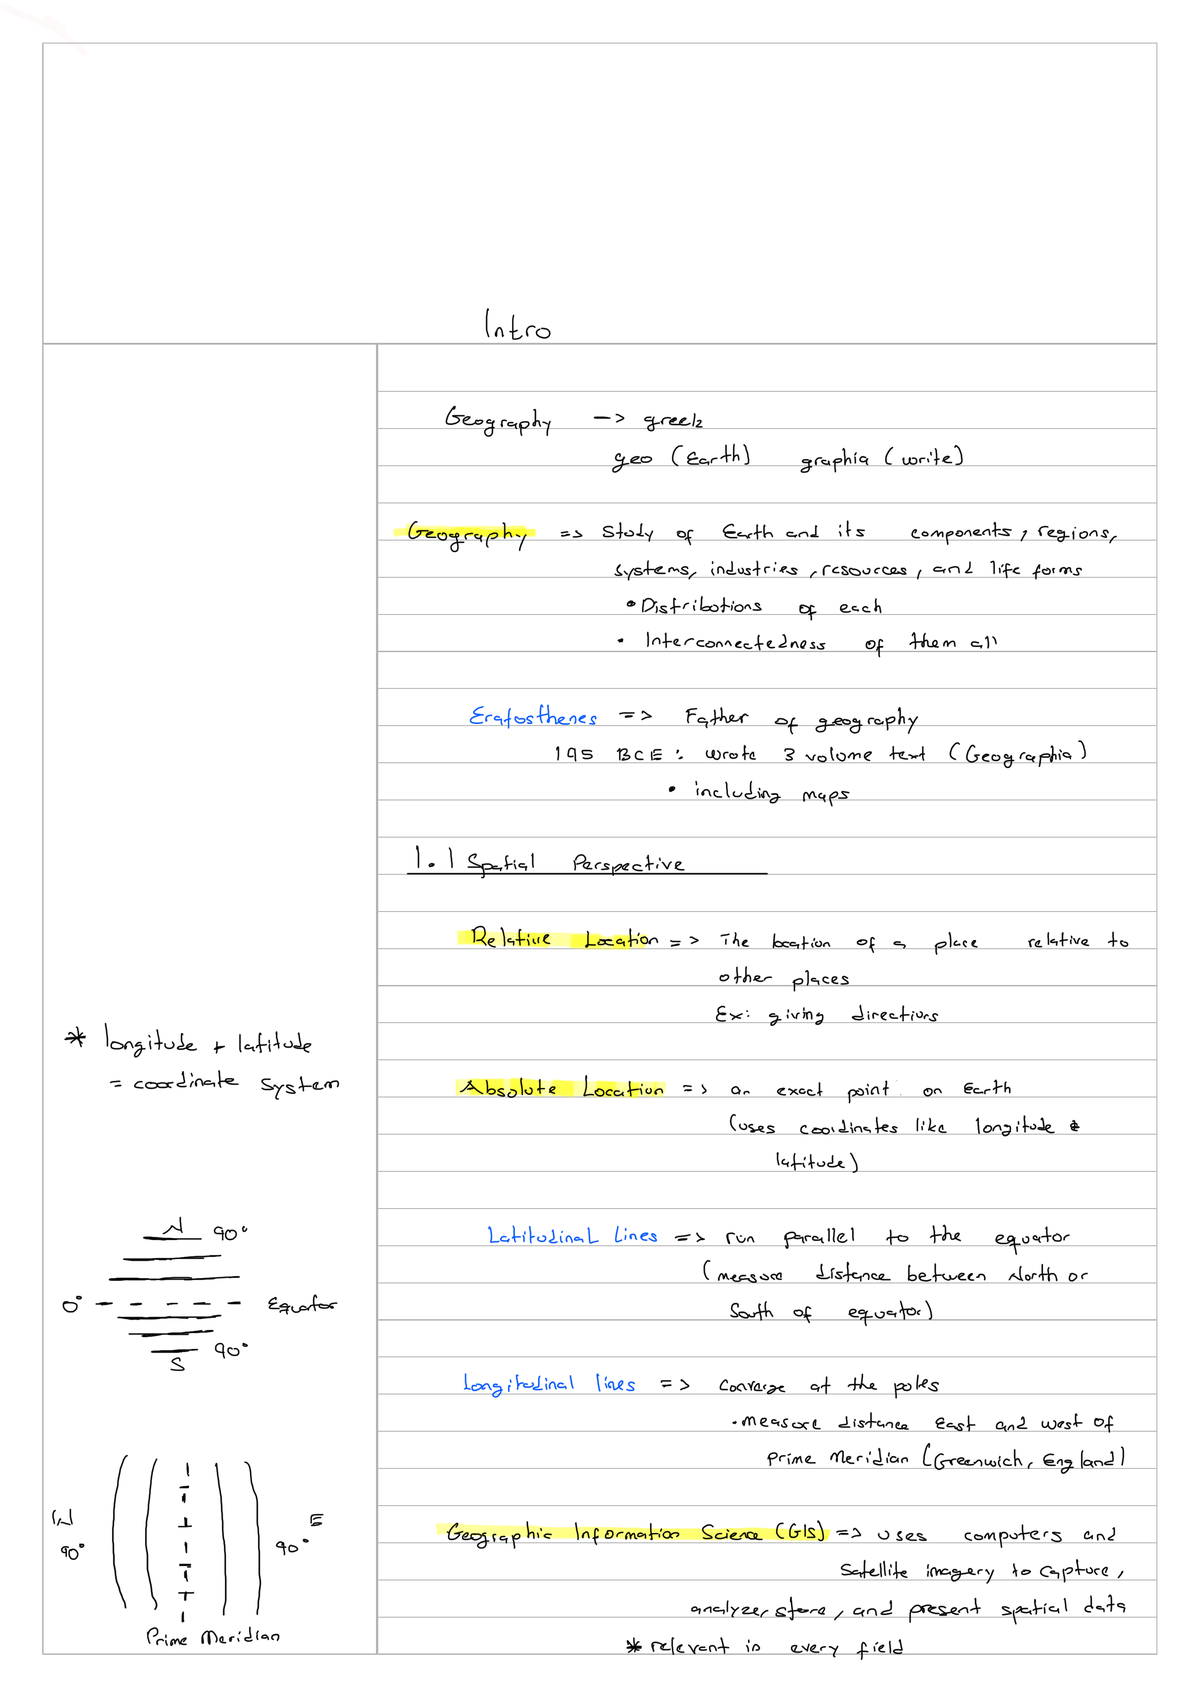 Intro
Geography -> greek
geo (Earth) graphia (write)
Geography => Study of Earth and its components, regions,
systems, industries, resources, and life forms
• Distributions of each
• Interconnectedness of them all
Eratosthenes => Father of geography
195 BCE: wrote 3 volume text (Geographia)
• including maps
1.1 Spatial Perspective
Relative Location => The location of a place relative to
other places
Ex: giving directions
* longitude + latitude
= coordinate system
Absolute Location => an exact point on Earth
(uses coordinates like longitude &
latitude)
N 90°
0° Equator
90°
S
Latitudinal Lines => run parallel to the equator
(measure distance between North or
South of equator)
Longitudinal lines => Converge at the poles
• measure distance East and west of
Prime Meridian (Greenwich, England)
W E
90° 90°
Prime Meridian
Geographic Information Science (GIS) => uses computers and
Satellite imagery to capture,
analyze, store, and present spatial data
* relevant in every field